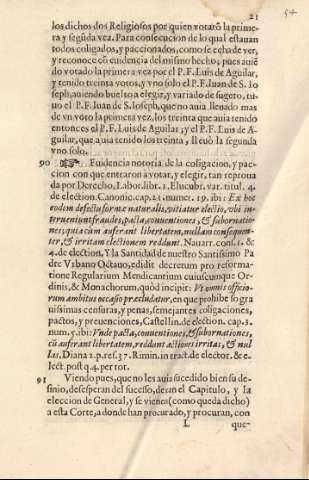 21
54
los dichos dos Religiosos por quien votarõ la prime-
ra y segũda vez. Para consecucion de lo qual estauan
todos coligados, y paccionados, como se echa de ver,
y reconoce cõ euidencia del mismo hecho; pues auiẽ
do votado la primera vez por el P.F. Luis de Aguilar,
y tenido treinta votos, y vno solo el P.F. Iuan de S. Io
seph, auiendo buelto a elegir, y variado de sugeto, tu-
uo el P.F. Iuan de S. Ioseph, que no auia lleuado mas
de vn voto la primera vez, los treinta que auia tenido
entonces el P.F. Luis de Aguilar; y el P.F. Luis de A-
guilar, que auia tenido los treinta, lleuò la segunda
vno solo.
90 Euidencia notoria de la coligacion, y pac-
cion con que entraron à votar, y elegir, tan reproua
da por Derecho, Labor. libr. 1. Elucubr. var. titul. 4.
de election. Canonic. cap. 21. numer. 19. ibi: Ex hoc
eodem defectu formæ naturalis, vitiatur electio, vbi in-
terueniunt fraudes, pacta, conuentiones, & subornatio-
nes; quia cùm auferant libertatem, nullam consequen-
ter, & irritam electionem reddunt. Nauarr. cons. 1. &
4. de election. Y la Santidad de nuestro Santissimo Pa
dre Vrbano Octauo, edidit decretum pro reforma-
tione Regularium Mendicantium cuiuscunque Or-
dinis, & Monachorum, quòd incipit: Vt omnis officio-
rum ambitus occasio præcludatur, en que prohibe so gra
uissimas censuras, y penas, semejantes coligaciones,
pactos, y preuenciones, Castellin. de election. cap. 3.
num. 7. ibi: Vnde pacta, conuentiones, & subornationes,
cũ auferant libertatem, reddunt actiones irritas, & nul
las, Diana 2. p. ref. 37. Rimin. in tract. de elector. & e-
lect. post q. 4. per tot.
91 Viendo pues, que no les auia sucedido bien su de-
sinio, desesperan del sucesso, dexan el Capitulo, y la
eleccion de General, y se vienen (como queda dicho)
a esta Corte, a donde han procurado, y procuran, con
L que-